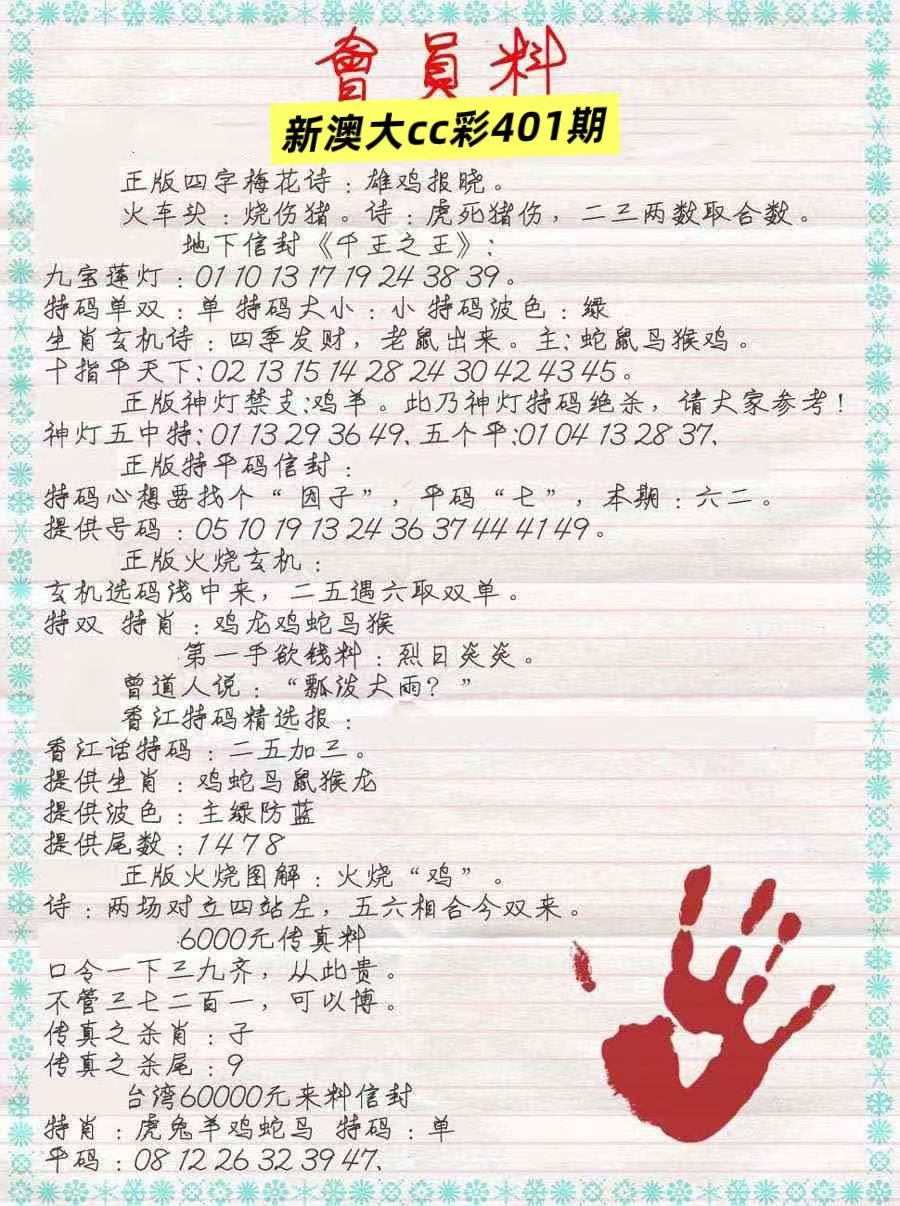 會員料
新澳大cc彩401期
正版四字梅花诗：雄鸡报晓。
火车头：烧伤猪。诗：虎死猪伤，二三两数取合数。
地下信封《千王之王》：
九宝莲灯：01 10 13 17 19 24 38 39。
特码单双：单 特码大小：小 特码波色：绿
生肖玄机诗：四季发财，老鼠出来。主：蛇鼠马猴鸡。
十指平天下：02 13 15 14 28 24 30 42 43 45。
正版神灯禁支：鸡羊。此乃神灯特码绝杀，请大家参考！
神灯五中特：01 13 29 36 49、五个平：01 04 13 28 37、
正版特平码信封：
特码心想要找个“因子”，平码“七”，本期：六二。
提供号码：05 10 19 13 24 36 37 44 41 49。
正版火烧玄机：
玄机选码浅中来，二五遇六取双单。
特双 特肖：鸡龙鸡蛇马猴
第一手欲钱料：烈日炎炎。
曾道人说：“瓢泼大雨？”
香江特码精选报：
香江话特码：二五加三。
提供生肖：鸡蛇马鼠猴龙
提供波色：主绿防蓝
提供尾数：1 4 7 8
正版火烧图解：火烧“鸡”。
诗：两场对立四站左，五六相合今双来。
6000元传真料
口令一下三九齐，从此贵。
不管三七二百一，可以博。
传真之杀肖：子
传真之杀尾：9
台湾60000元来料信封
特肖：虎兔羊鸡蛇马 特码：单
平码：08 12 26 32 39 47、